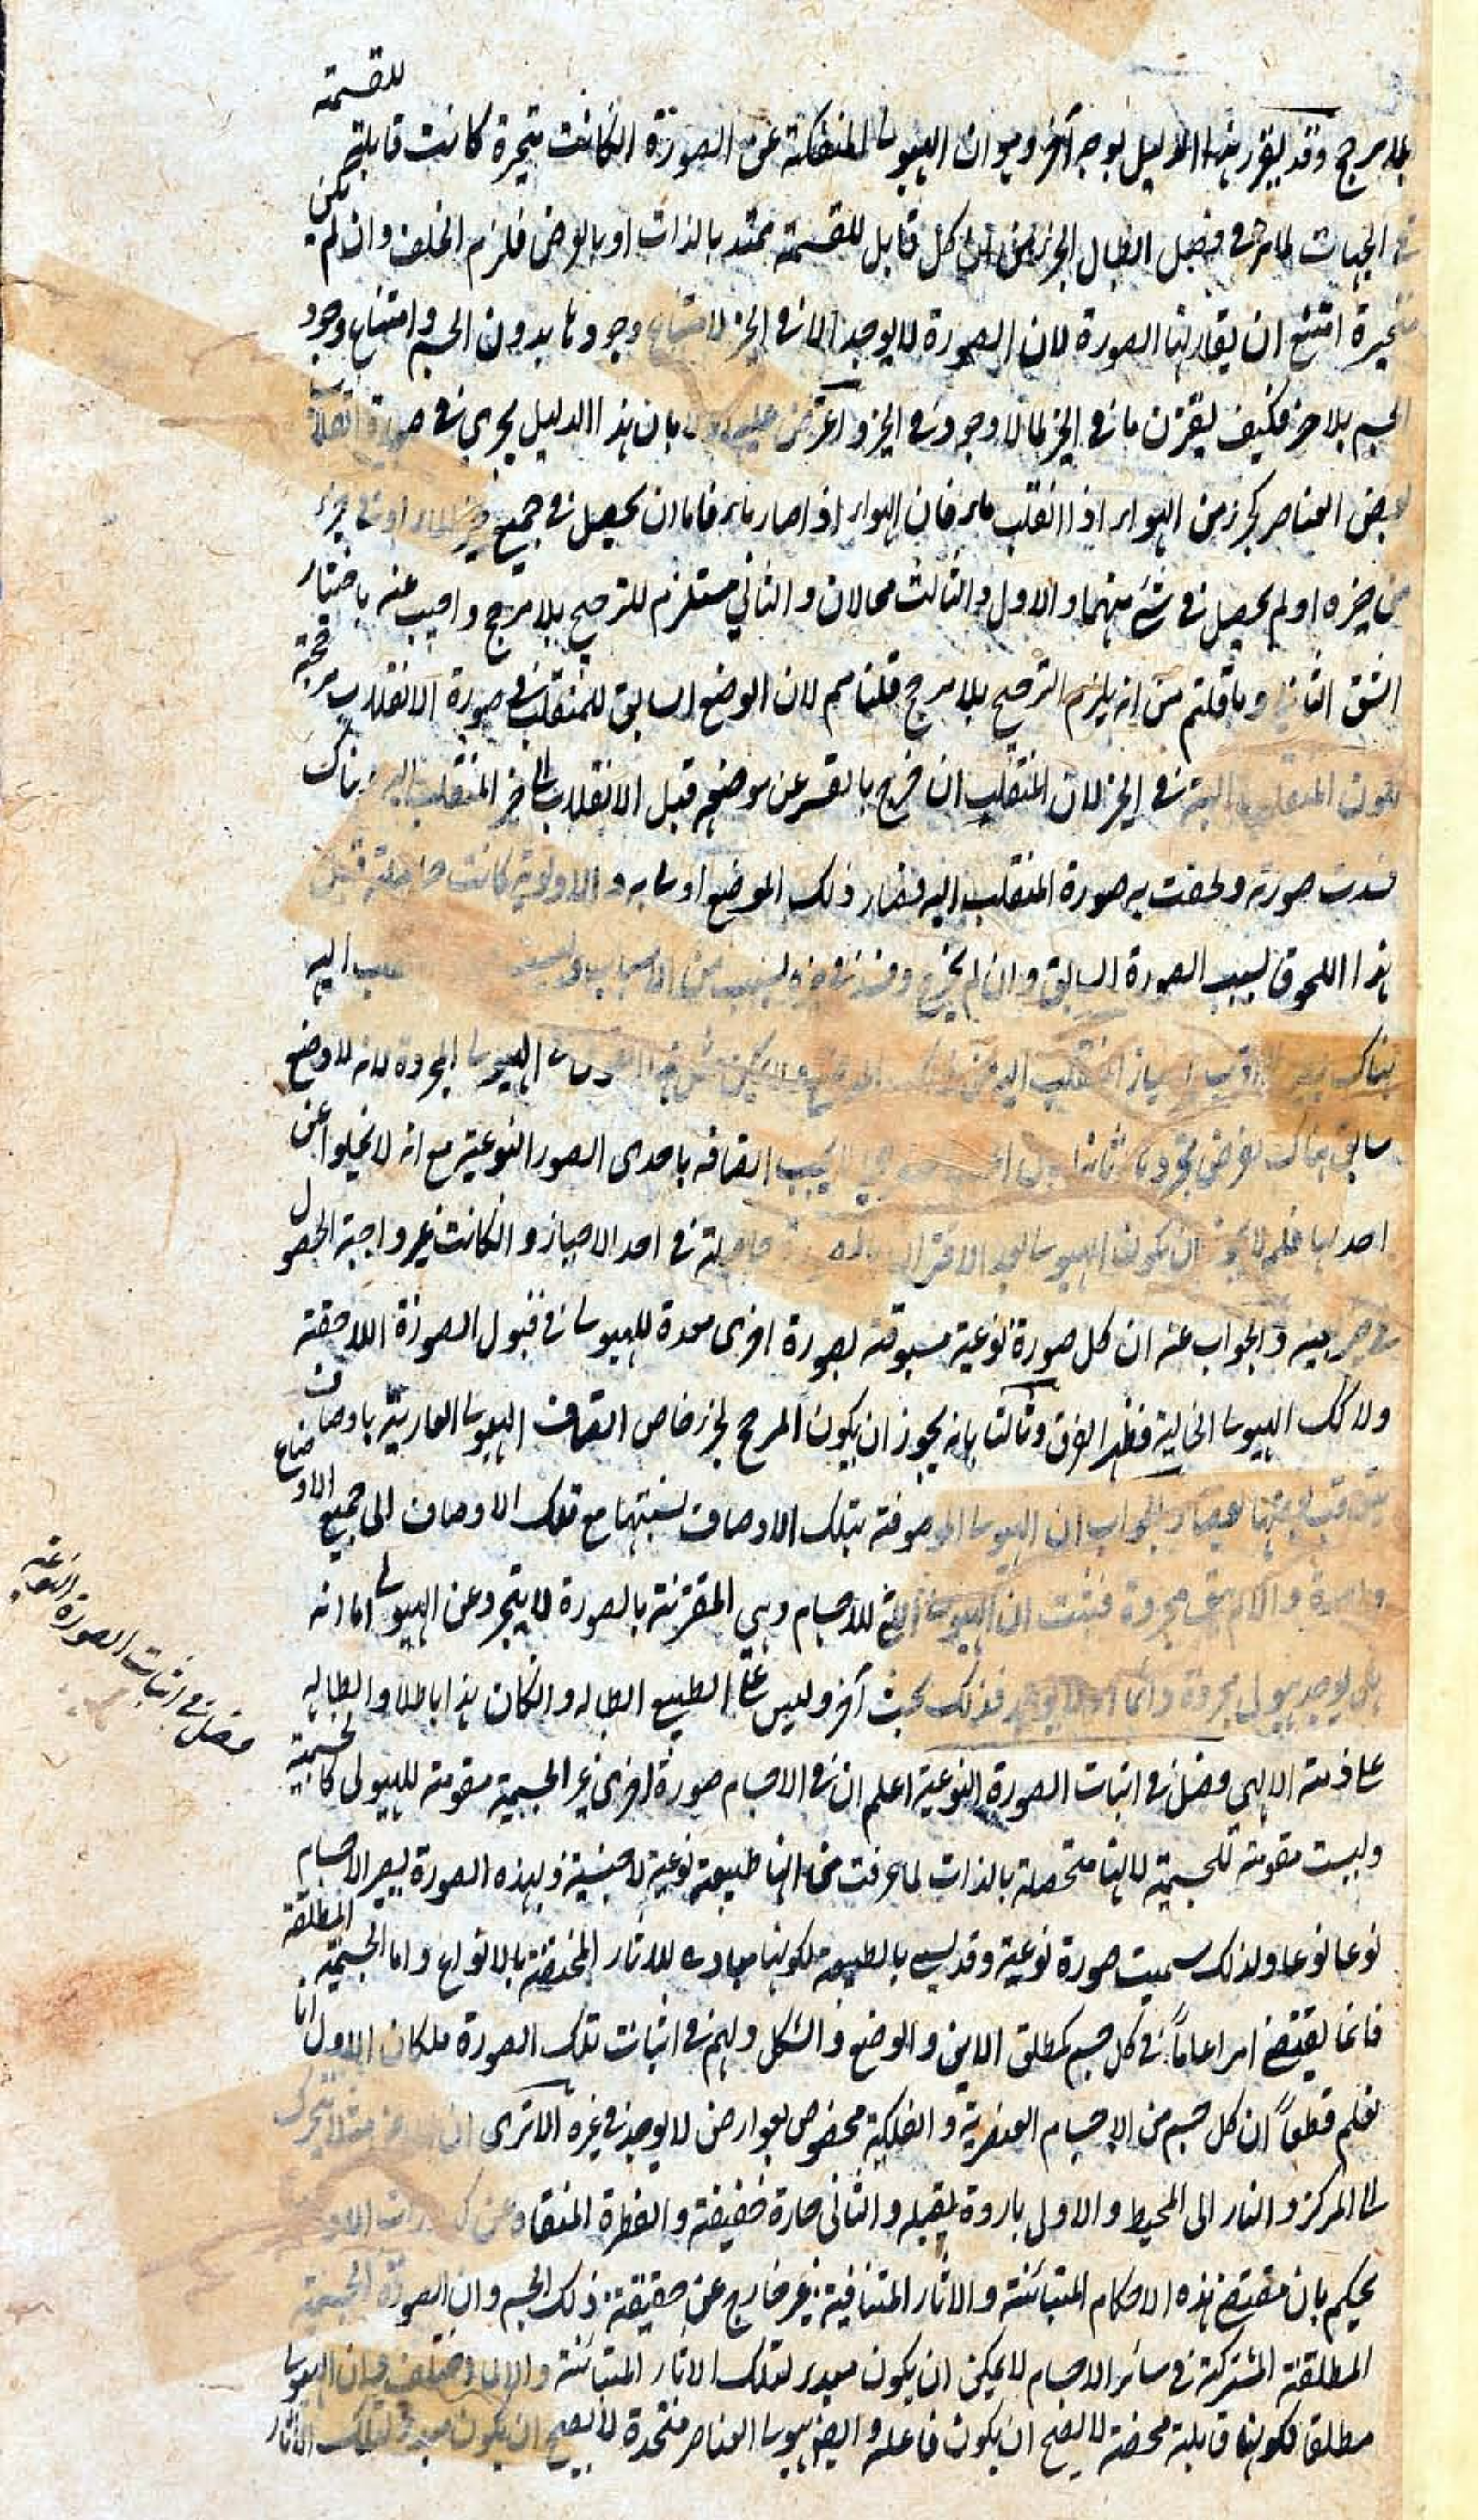 بلا مرجح وقد يقرر هذا الدليل بوجه آخر وهو ان الهيولى المنفكة عن الصورة ان كانت متحيزة كانت قابلة للقسمة
فى الجهات لما مر فى فصل ابطال الجزء من ان كل قابل للقسمة ممتد بالذات او بالعرض فلزم الخلف وان لم يكن
متحيزة امتنع ان يقارنها الصورة لان الصورة لا يوجد الا فى الحيز لامتناع وجودها بدون الجسم وامتناع وجود
الجسم بلا حيز فكيف يقترن ما فى الحيز بما لا وجود فى الحيز واعترض عليه اولا بان هذا الدليل يجرى فى صورة انقلاب
بعض العناصر كجزء من الهواء اذا انقلب ماء فان الهواء اذا صار ماء فاما ان يحصل فى جميع حيز الماء او فى جزء
من حيزه او لم يحصل فى شئ منهما والاول والثالث محالان والثانى مستلزم للترجيح بلا مرجح واجيب عنه باختيار
الشق الثانى وما قلتم من انه يلزم الترجيح بلا مرجح قلنا مم لان الوضع السابق للمنقلب فى صورة الانقلاب مرجحة
المنقلب اليه فى الحيز لان المنقلب ان خرج بالقسر عن موضعه قبل الانقلاب الى حيز المنقلب اليه هناك
فسدت صورته ولحقت به صورة المنقلب اليه فصار ذلك الموضع اولى به والاولوية كانت حاصلة قبل
هذا اللحوق بسبب الصورة السابق وان لم يخرج وفسد فى حيزه بسبب من الاسباب اليه
هناك اقرب احياز المنقلب اليه من الهيولى المجردة لانه لا وضع
سابق هناك بفرض تجردها ثانيا اتصافه باحدى الصور النوعية مع انه لا يخلوا عن
احدها فلم لا يجوز ان يكون الهيولى بعد الاقتران بالصورة حاصلة فى احد الاحياز وان كانت غير واجبة الحصول
فى حيز بعينه والجواب عنه ان كل صورة نوعية مسبوقة بصورة اخرى معدة للهيولى فى قبول الصورة اللاحقة
ولا كك الهيولى الخالية فظهر الفرق وثالثا بانه يجوز ان يكون المرجح لحيز خاص اتصاف الهيولى العارية باوصاف
يتعاقب بعضها بعضا والجواب ان الهيولى الموصوفة بتلك الاوصاف نسبتها مع تلك الاوصاف الى جميع الاوضاع
واحدة والا لم يبق مجردة فثبت ان الهيولى التى للاجسام وهى المقترنة بالصورة لا يتجرد عن الهيولى اما انه
هل يوجد هيولى مجردة دائما فذلك بحث آخر وليس على الطبيعى ابطاله وان كان هذا باطلا وابطاله
على ذمة الالهى فصل فى اثبات الصورة النوعية اعلم ان فى الاجسام صورة اخرى غير الجسمية مقومة للهيولى كالجسمية
وليست مقومة للجسمية لانها متحصلة بالذات لما عرفت من انها طبيعة نوعية لا جنسية وبهذه الصورة يصير الاجسام
نوعا نوعا ولذلك سميت صورة نوعية وقد يسمى بالطبيعة لكونها مبادى للاثار المختصة بالانواع واما الجسمية المطلقة
فانما يقتضى امرا عاما فى كل جسم كمطلق الاين والوضع والشكل ولهم فى اثبات تلك الصورة مسلكان الاول انا
نعلم قطعا ان كل جسم من الاجسام العنصرية والفلكية مخصوص بعوارض لا يوجد فى غيره الا ترى ان الارض مثلا يتحرك
الى المركز والنار الى المحيط والاول باردة ثقيلة والثانى حارة خفيفة والفطرة المنقادة
يحكم بان مقتضى هذه الاحكام المتباينة والاثار المتنافية غير خارج عن حقيقة ذلك الجسم وان الصورة الجسمية
المطلقة المشتركة فى سائر الاجسام لا يمكن ان يكون مبدء لتلك الاثار المتباينة والا لما اختلف وان الهيولى
مطلقا لكونها قابلة محضة لا يصح ان يكون فاعلة وايضا هيولى العناصر متحدة لا يصح ان يكون مبدءا لتلك الاثار
فصل فى اثبات الصورة النوعية